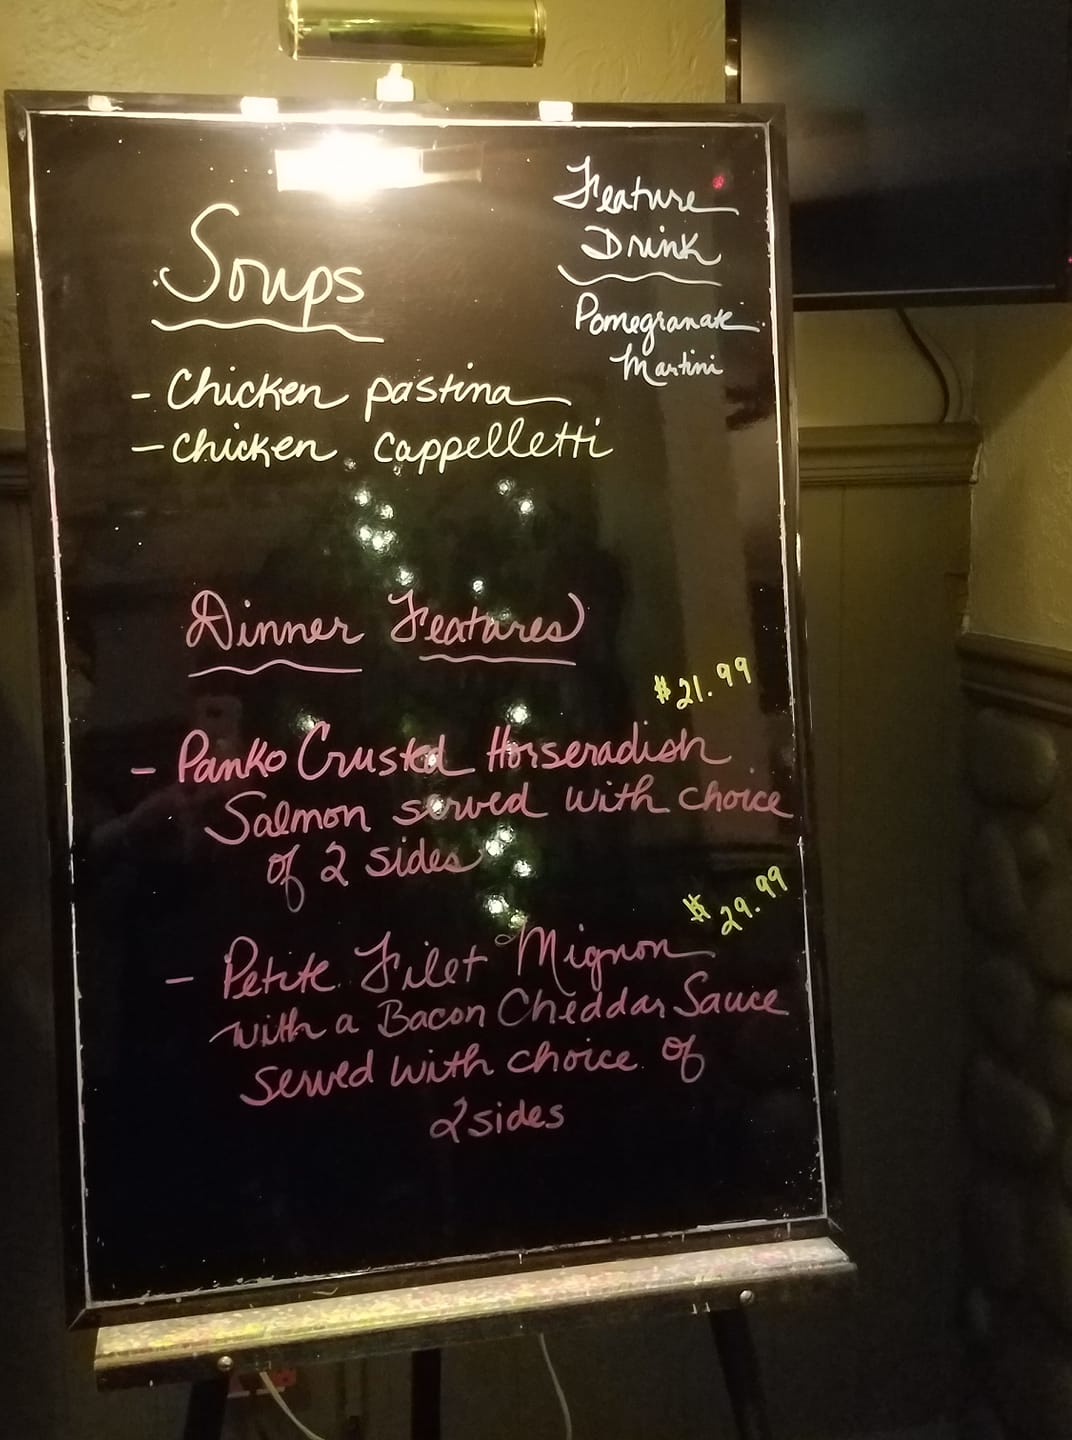 Soups
- Chicken pastina
- Chicken cappelletti
Feature
Drink
Pomegranate
Martini
Dinner Features
$21.99
- Panko Crusted Horseradish
Salmon served with choice
of 2 sides
$29.99
- Petite Filet Mignon
with a Bacon Cheddar Sauce
served with choice of
2 sides